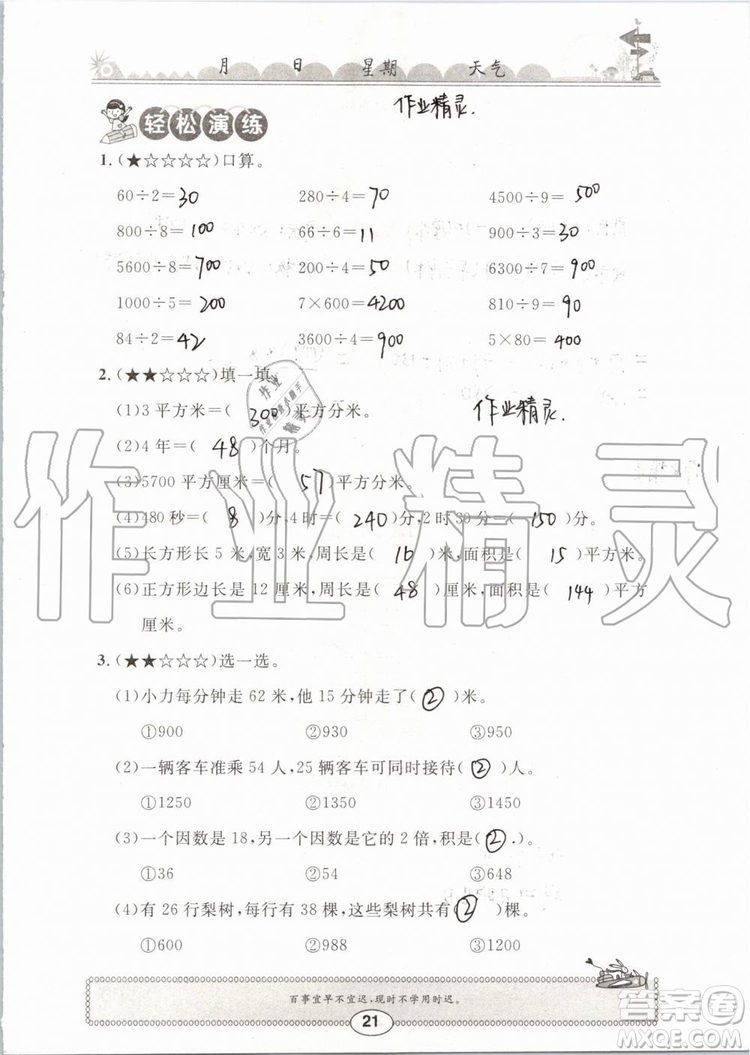 月 日 星期 天气
轻松演练 作业精灵.
1.(★☆☆☆☆)口算。
60÷2= 30 280÷4= 70 4500÷9= 500
800÷8= 100 66÷6= 11 900÷3= 30
5600÷8= 700 200÷4= 50 6300÷7= 900
1000÷5= 200 7×600= 4200 810÷9= 90
84÷2= 42 3600÷4= 900 5×80= 400
2.(★★☆☆☆)填一填。
(1)3平方米=( 300 )平方分米。 作业精灵.
(2)4年=( 48 )个月。
(3)5700平方厘米=( 57 )平方分米。
(4)480秒=( 8 )分,4时=( 240 )分,2时30分=( 150 )分。
(5)长方形长5米,宽3米,周长是( 16 )米,面积是( 15 )平方米。
(6)正方形边长是12厘米,周长是( 48 )厘米,面积是( 144 )平方
厘米。
3.(★★☆☆☆)选一选。
(1)小力每分钟走62米,他15分钟走了( ② )米。
①900 ②930 ③950
(2)一辆客车准乘54人,25辆客车可同时接待( ② )人。
①1250 ②1350 ③1450
(3)一个因数是18,另一个因数是它的2倍,积是( ② )。
①36 ②54 ③648
(4)有26行梨树,每行有38棵,这些梨树共有( ② )棵。
①600 ②988 ③1200
百事宜早不宜迟,现时不学用时迟。
21
作业精灵
答案圈